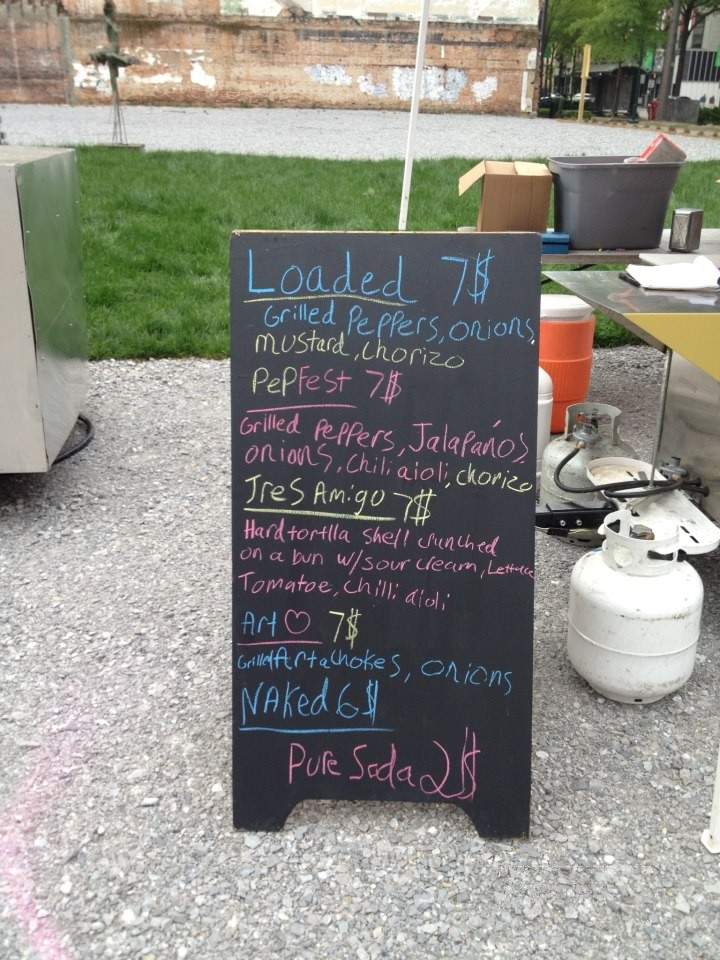 Loaded 7$
Grilled Peppers, onions,
mustard, chorizo
PepFest 7$
Grilled Peppers, Jalapaños,
onions, chili aioli, chorizo
Tres Amigo 7$
Hard tortlla shell crunched
on a bun w/sour cream, Lettuce
Tomatoe, chilli aioli
Art ♡ 7$
Grilled Artachokes, onions
NAKed 6$
Pure Soda 2$